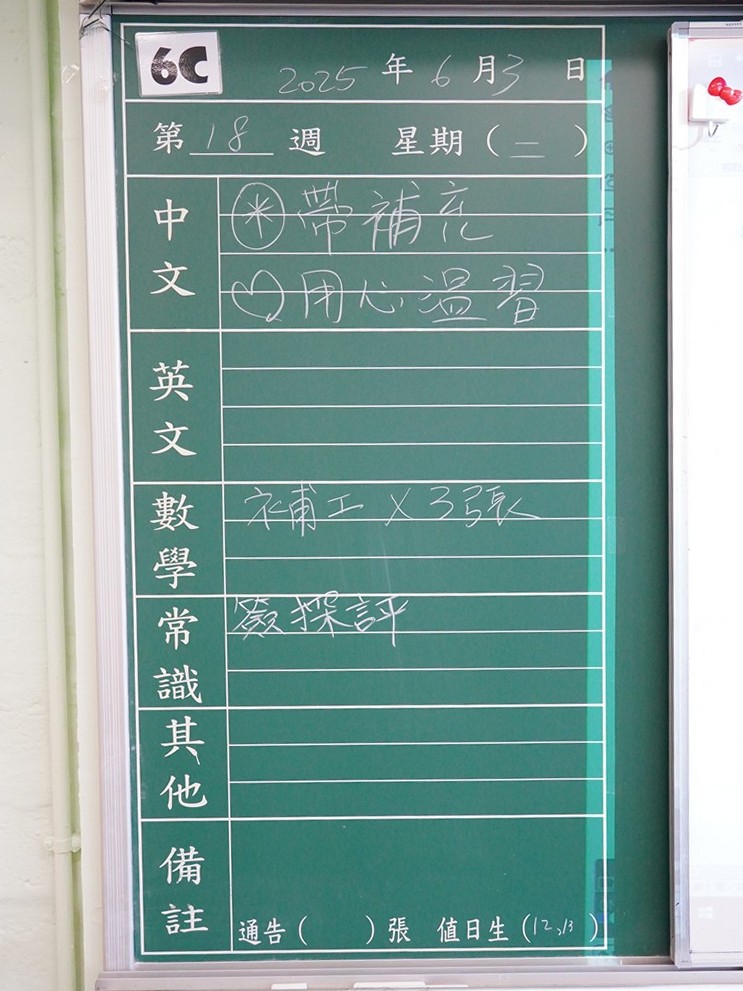 6C
2025 年 6 月 3 日
第 18 週 星期 ( 二 )
中文
帶補充
用心溫習
英文
數學
補工 × 3張
常識
簽探評
其他
備註
通告 ( ) 張 值日生 (12,13)